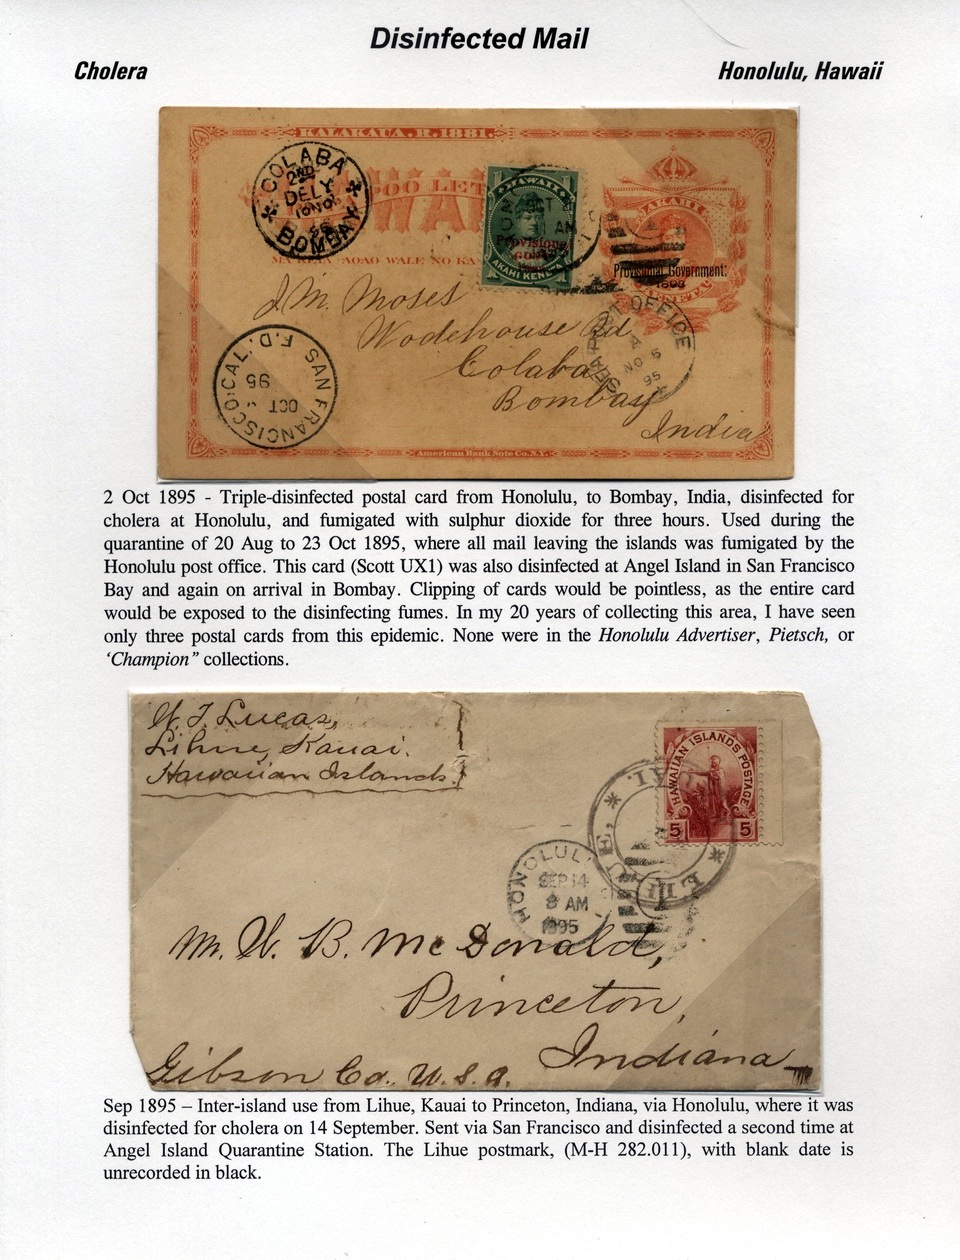 Disinfected Mail
Cholera
Honolulu, Hawaii
KALAKAUA.R.1881.
COLABA
2ND
DELY
10 NO
95
BOMBAY
HAWAII
OCT
AM
Provisional
GOVT
AKAHI KENETA
AKAHI
Provisional Government:
1893
KENETA
SEA POST OFFICE
A
NO 5
95
J M. Moses
Wodehouse Rd
Colaba
Bombay
India
SAN FRANCISCO, CAL. F.D.
OCT
95
American Bank Note Co. N.Y.
2 Oct 1895 - Triple-disinfected postal card from Honolulu, to Bombay, India, disinfected for
cholera at Honolulu, and fumigated with sulphur dioxide for three hours. Used during the
quarantine of 20 Aug to 23 Oct 1895, where all mail leaving the islands was fumigated by the
Honolulu post office. This card (Scott UX1) was also disinfected at Angel Island in San Francisco
Bay and again on arrival in Bombay. Clipping of cards would be pointless, as the entire card
would be exposed to the disinfecting fumes. In my 20 years of collecting this area, I have seen
only three postal cards from this epidemic. None were in the Honolulu Advertiser, Pietsch, or
‘Champion” collections.
W. T. Lucas,
Lihue, Kauai.
Hawaiian Islands.
HAWAIIAN ISLANDS POSTAGE
5 5
HONOLULU
SEP 14
8 AM
1895
Mr. W. B. McDonald,
Princeton,
Indiana
Gibson Co. U.S.A.
Sep 1895 – Inter-island use from Lihue, Kauai to Princeton, Indiana, via Honolulu, where it was
disinfected for cholera on 14 September. Sent via San Francisco and disinfected a second time at
Angel Island Quarantine Station. The Lihue postmark, (M-H 282.011), with blank date is
unrecorded in black.